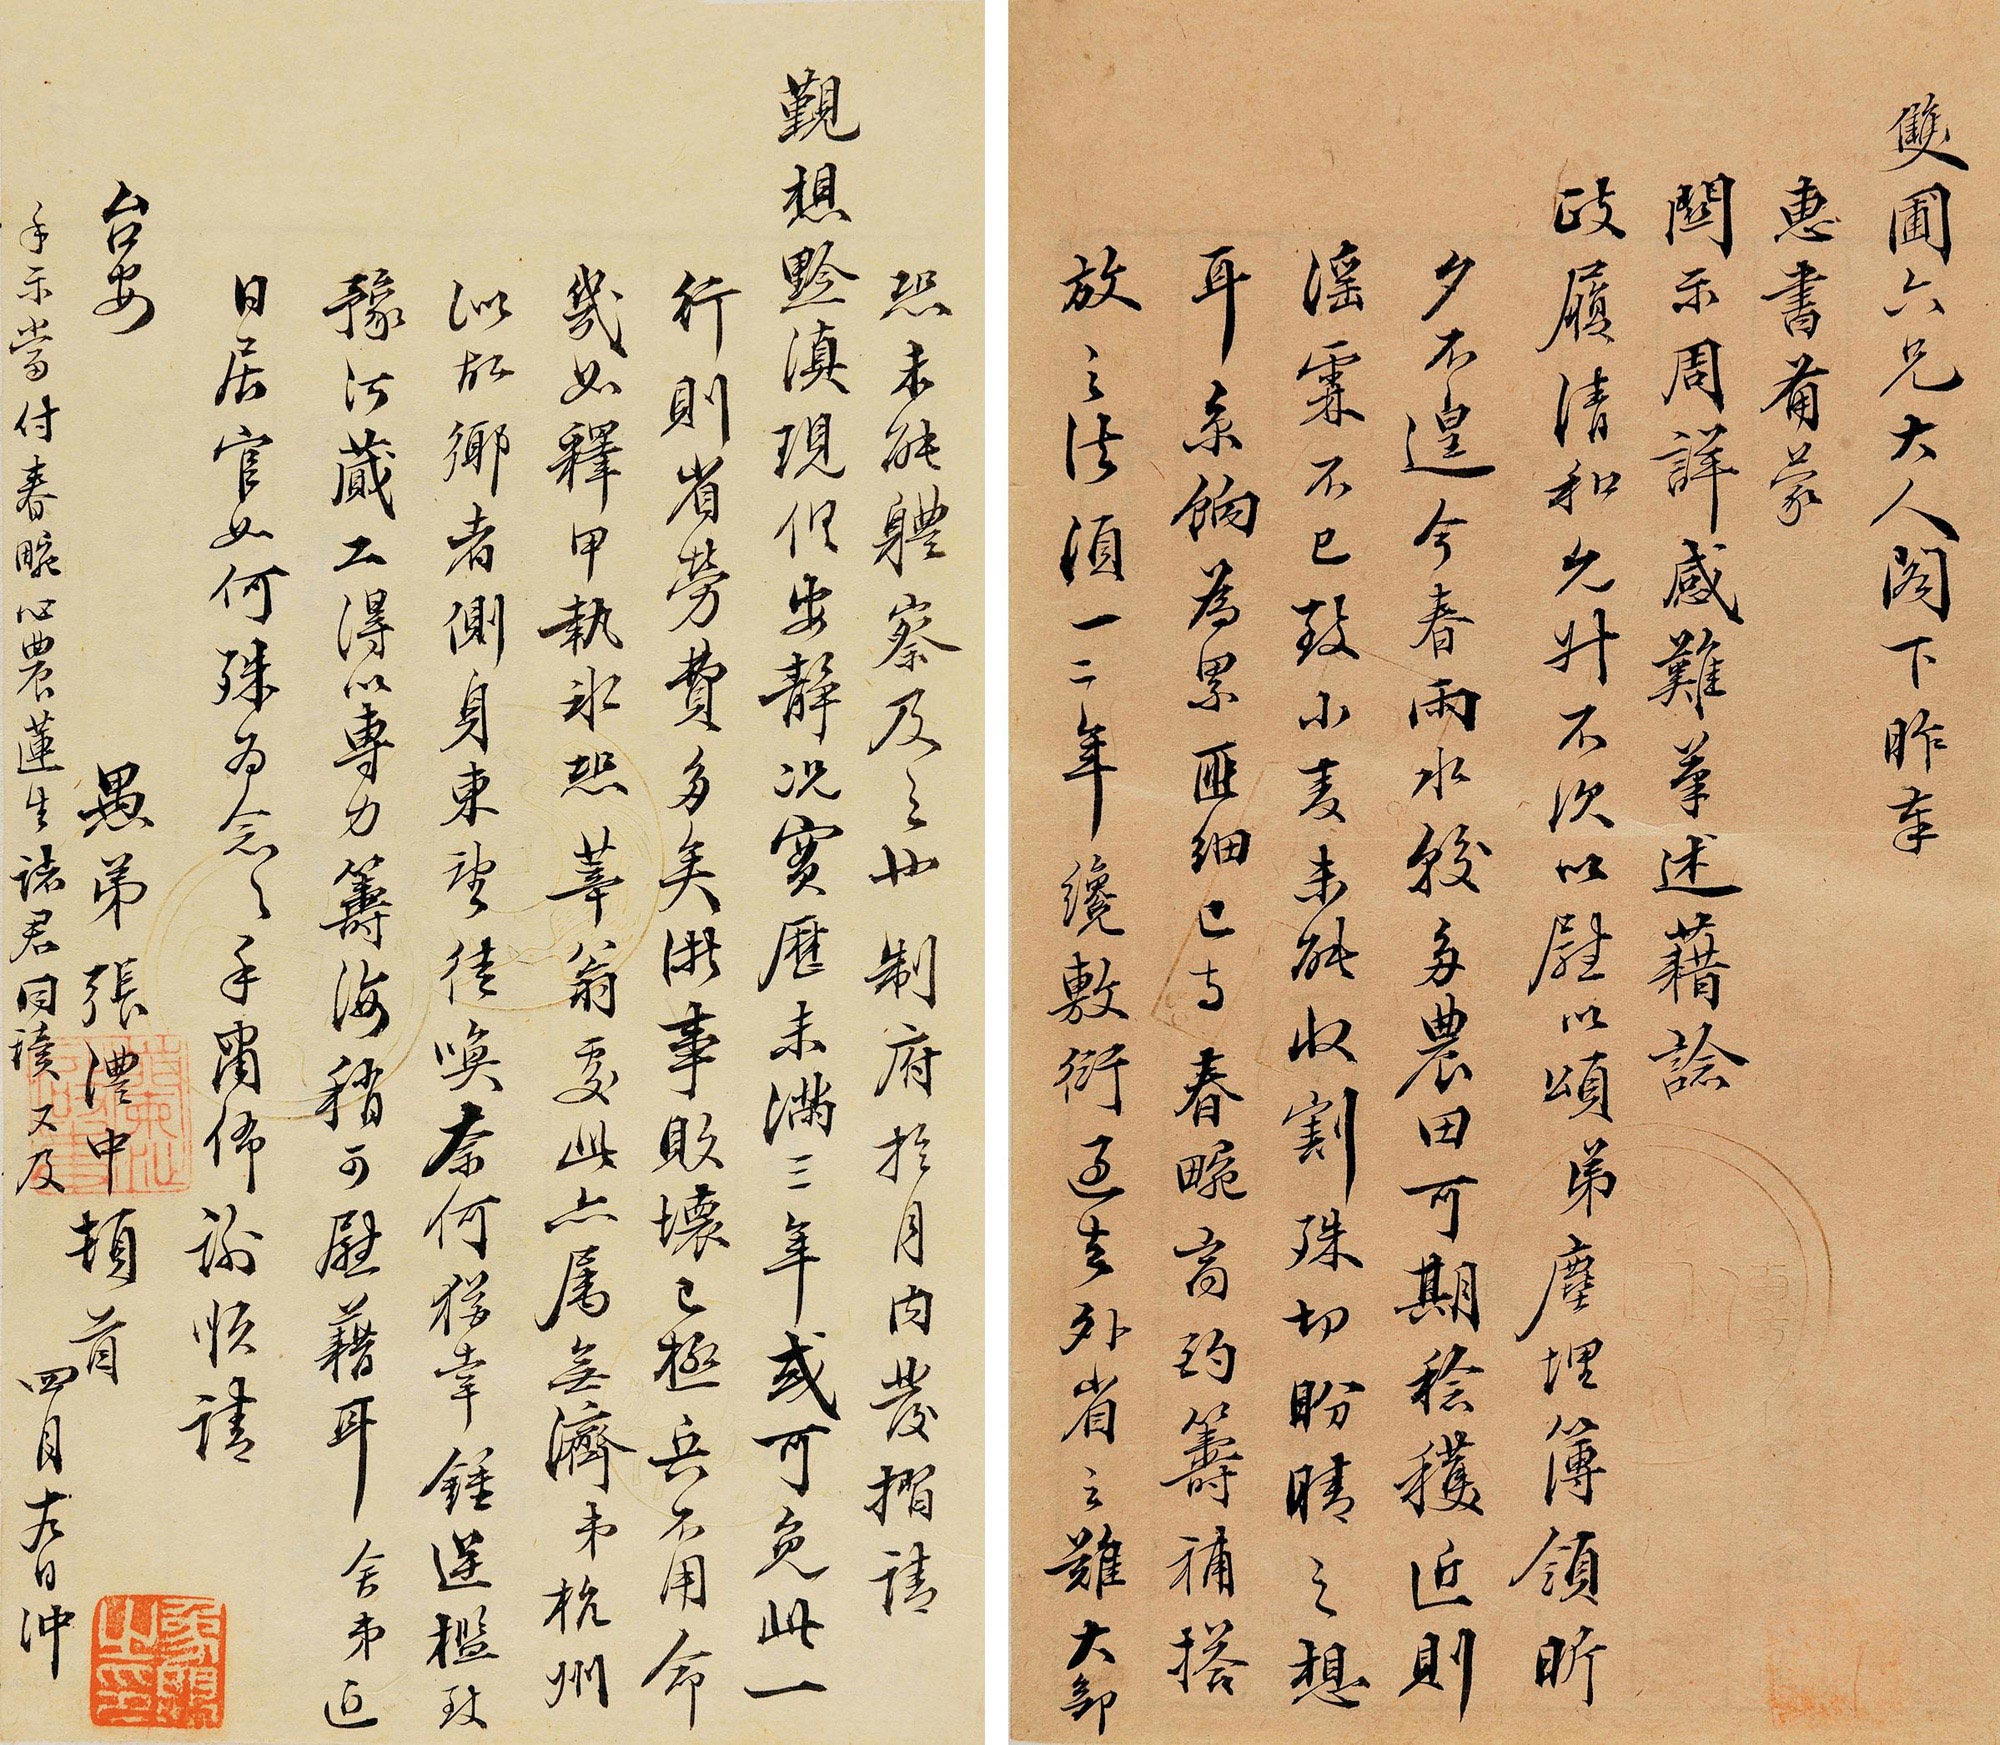 雙圃六兄大人閣下昨奉
惠書荷蒙
關示周詳感難筆述藉諗
政履清和允升不次以慰以頌弟塵埋簿領昕
夕不遑今春雨水較多農田可期稔穫近則
淫霖不已致小麦未能收割殊切盼晴之想
耳京餉為累匪細已与春畹商酌籌補搭
放之法須一二年纔敷衍過去外省之難大部
恐未能體察及之也制府於月内發摺請
覲想黔滇現但安靜況實歷未滿三年或可免此一
行則省勞費多矣浙事敗壞已極兵不用命
幾如釋甲執冰恐莘翁處此亦属無濟弟杭州
似故鄉者側身東望徒喚奈何猶幸錘逆檻致
豫河蕆工得以專力籌海稍可慰藉耳舍弟近
日居官如何殊为念之手肅佈謝順請
台安
愚弟張澧中頓首
四月十六日沖
手示當付春畹心農蓮生諸君同讀又及